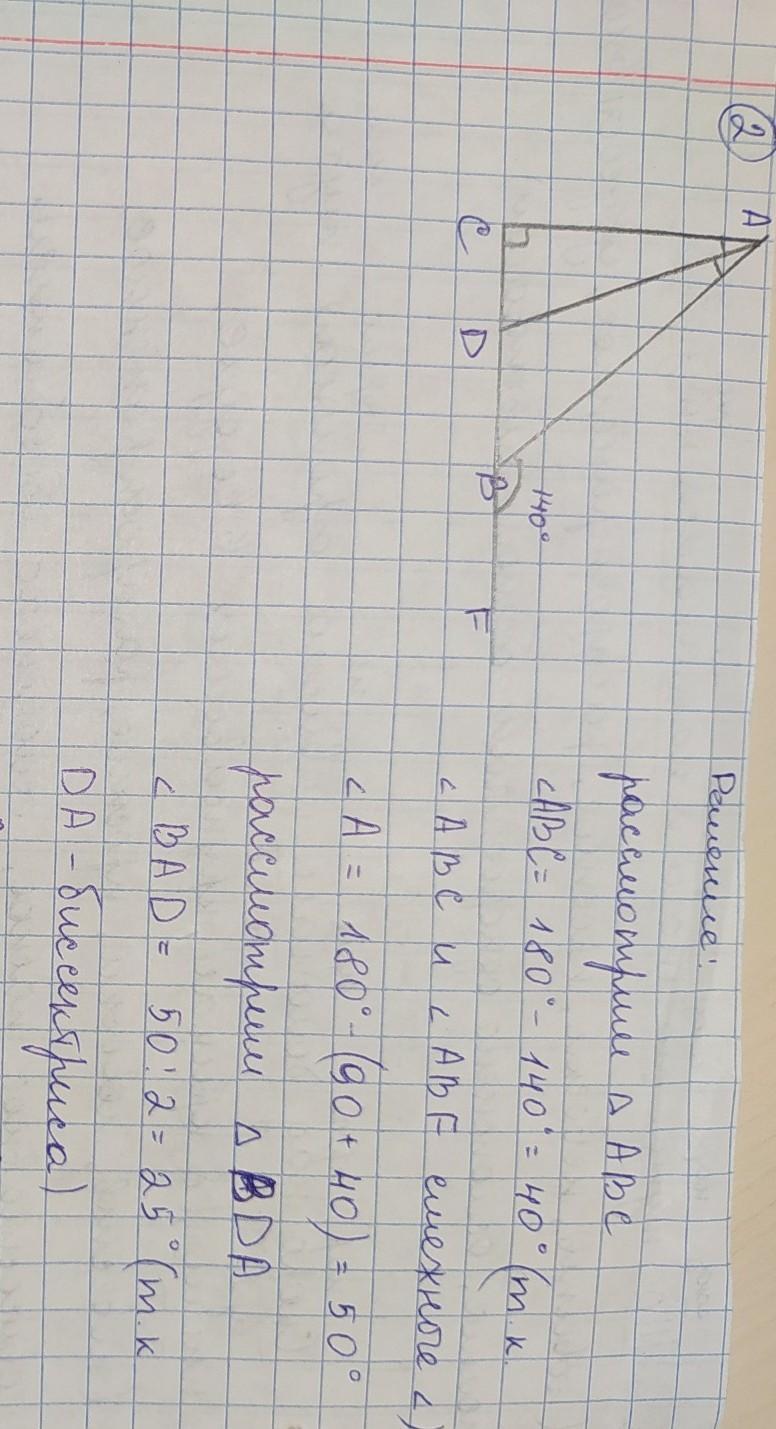 2
A
C
D
B
140°
F
Решение:
рассмотрим △ ABC
∠ABC = 180° - 140° = 40° (т.к.
∠ABC и ∠ABF смежные ∠)
∠A = 180° - (90 + 40) = 50°
рассмотрим △ BDA
∠BAD = 50 : 2 = 25° (т.к
DA - биссектриса)